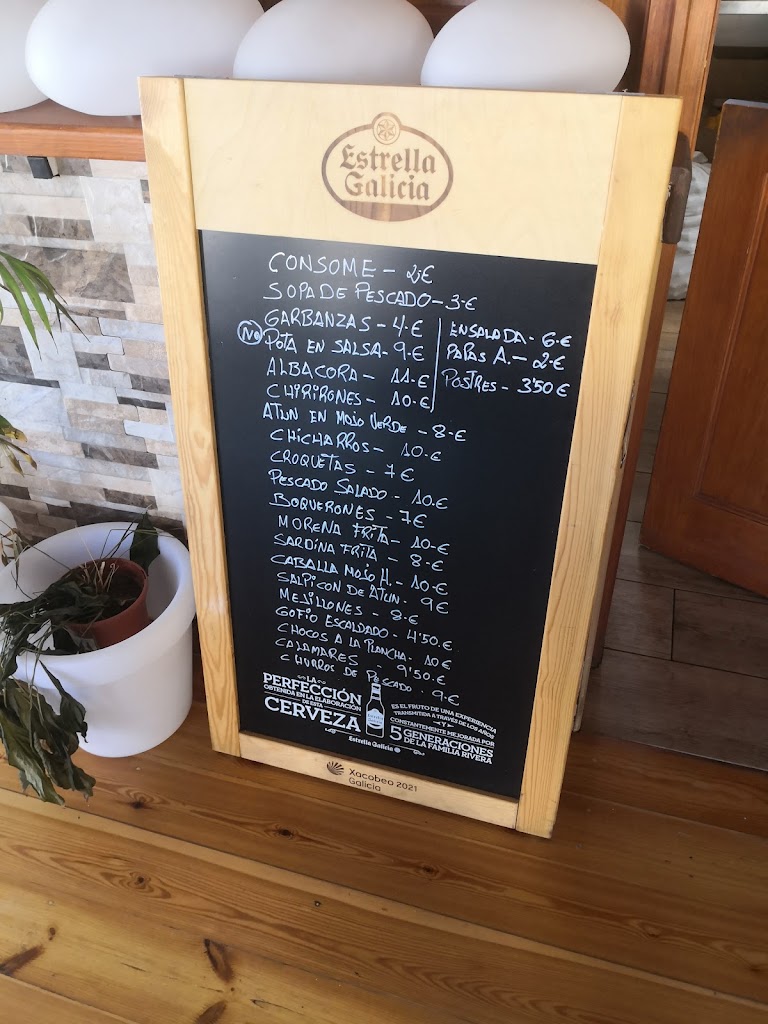 Estrella
Galicia
CONSOME - 2,€
SOPA DE PESCADO - 3-€
GARBANZAS - 4-€
No
POTA EN SALSA - 9-€
ALBACORA - 11-€
CHIRIRONES - 10-€
ATUN EN MOJO VERDE - 8-€
CHICHARROS - 10-€
CROQUETAS - 7€
PESCADO SALADO - 10-€
BOQUERONES - 7€
MORENA FRITA - 10-€
SARDINA FRITA - 8-€
CABALLA MOJO H. - 10-€
SALPICON DE ATUN - 9€
MEJILLONES - 8-€
GOFIO ESCALDADO - 4'50.€
CHOCOS A LA PLANCHA - 10€
CALAMARES - 9'50€
CHURROS DE PESCADO - 9-€
ENSALADA - 6-€
PAPAS A. - 2-€
POSTRES - 3'50€
LA
PERFECCIÓN
OBTENIDA EN LA ELABORACIÓN
DE ESTA
CERVEZA
ES EL FRUTO DE UNA EXPERIENCIA
TRANSMITIDA A TRAVÉS DE LOS AÑOS
Y
CONSTANTEMENTE MEJORADA POR
5 GENERACIONES
DE LA FAMILIA RIVERA
Estrella Galicia
Xacobeo 2021
Galicia